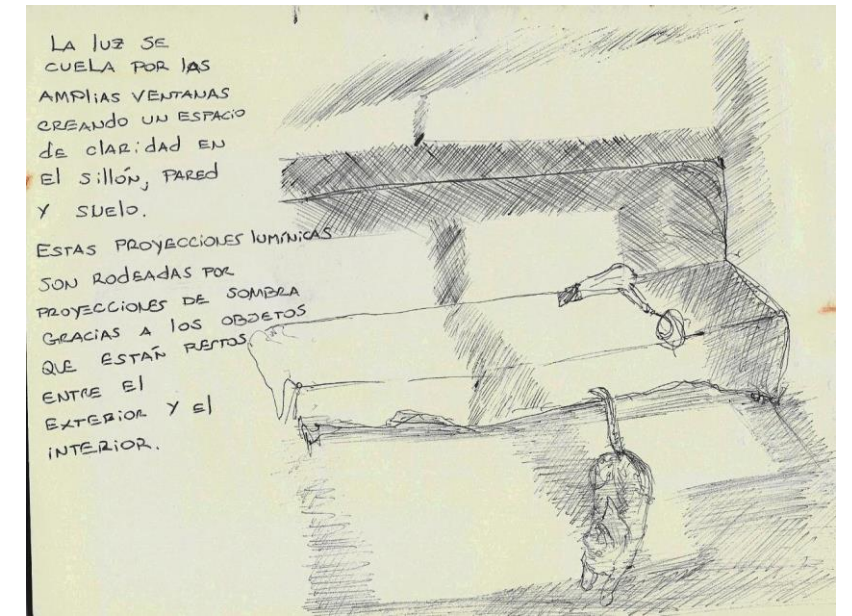 LA luz SE
CUELA POR lAS
AMPliAS VENTANAS
CREANdo UN ESPACIO
dE clARidAd EN
El sillóN, PAREd
Y SUElo.
ESTAS PROYECCIONES lUMÍNicAS
SON ROdEAdAS POR
PROYECCIONES DE SOMBRA
GRACIAS A los OBJETOS
QUE ESTÁN PUESTOS
ENTRE El
EXTERIOR Y El
iNTERIOR.